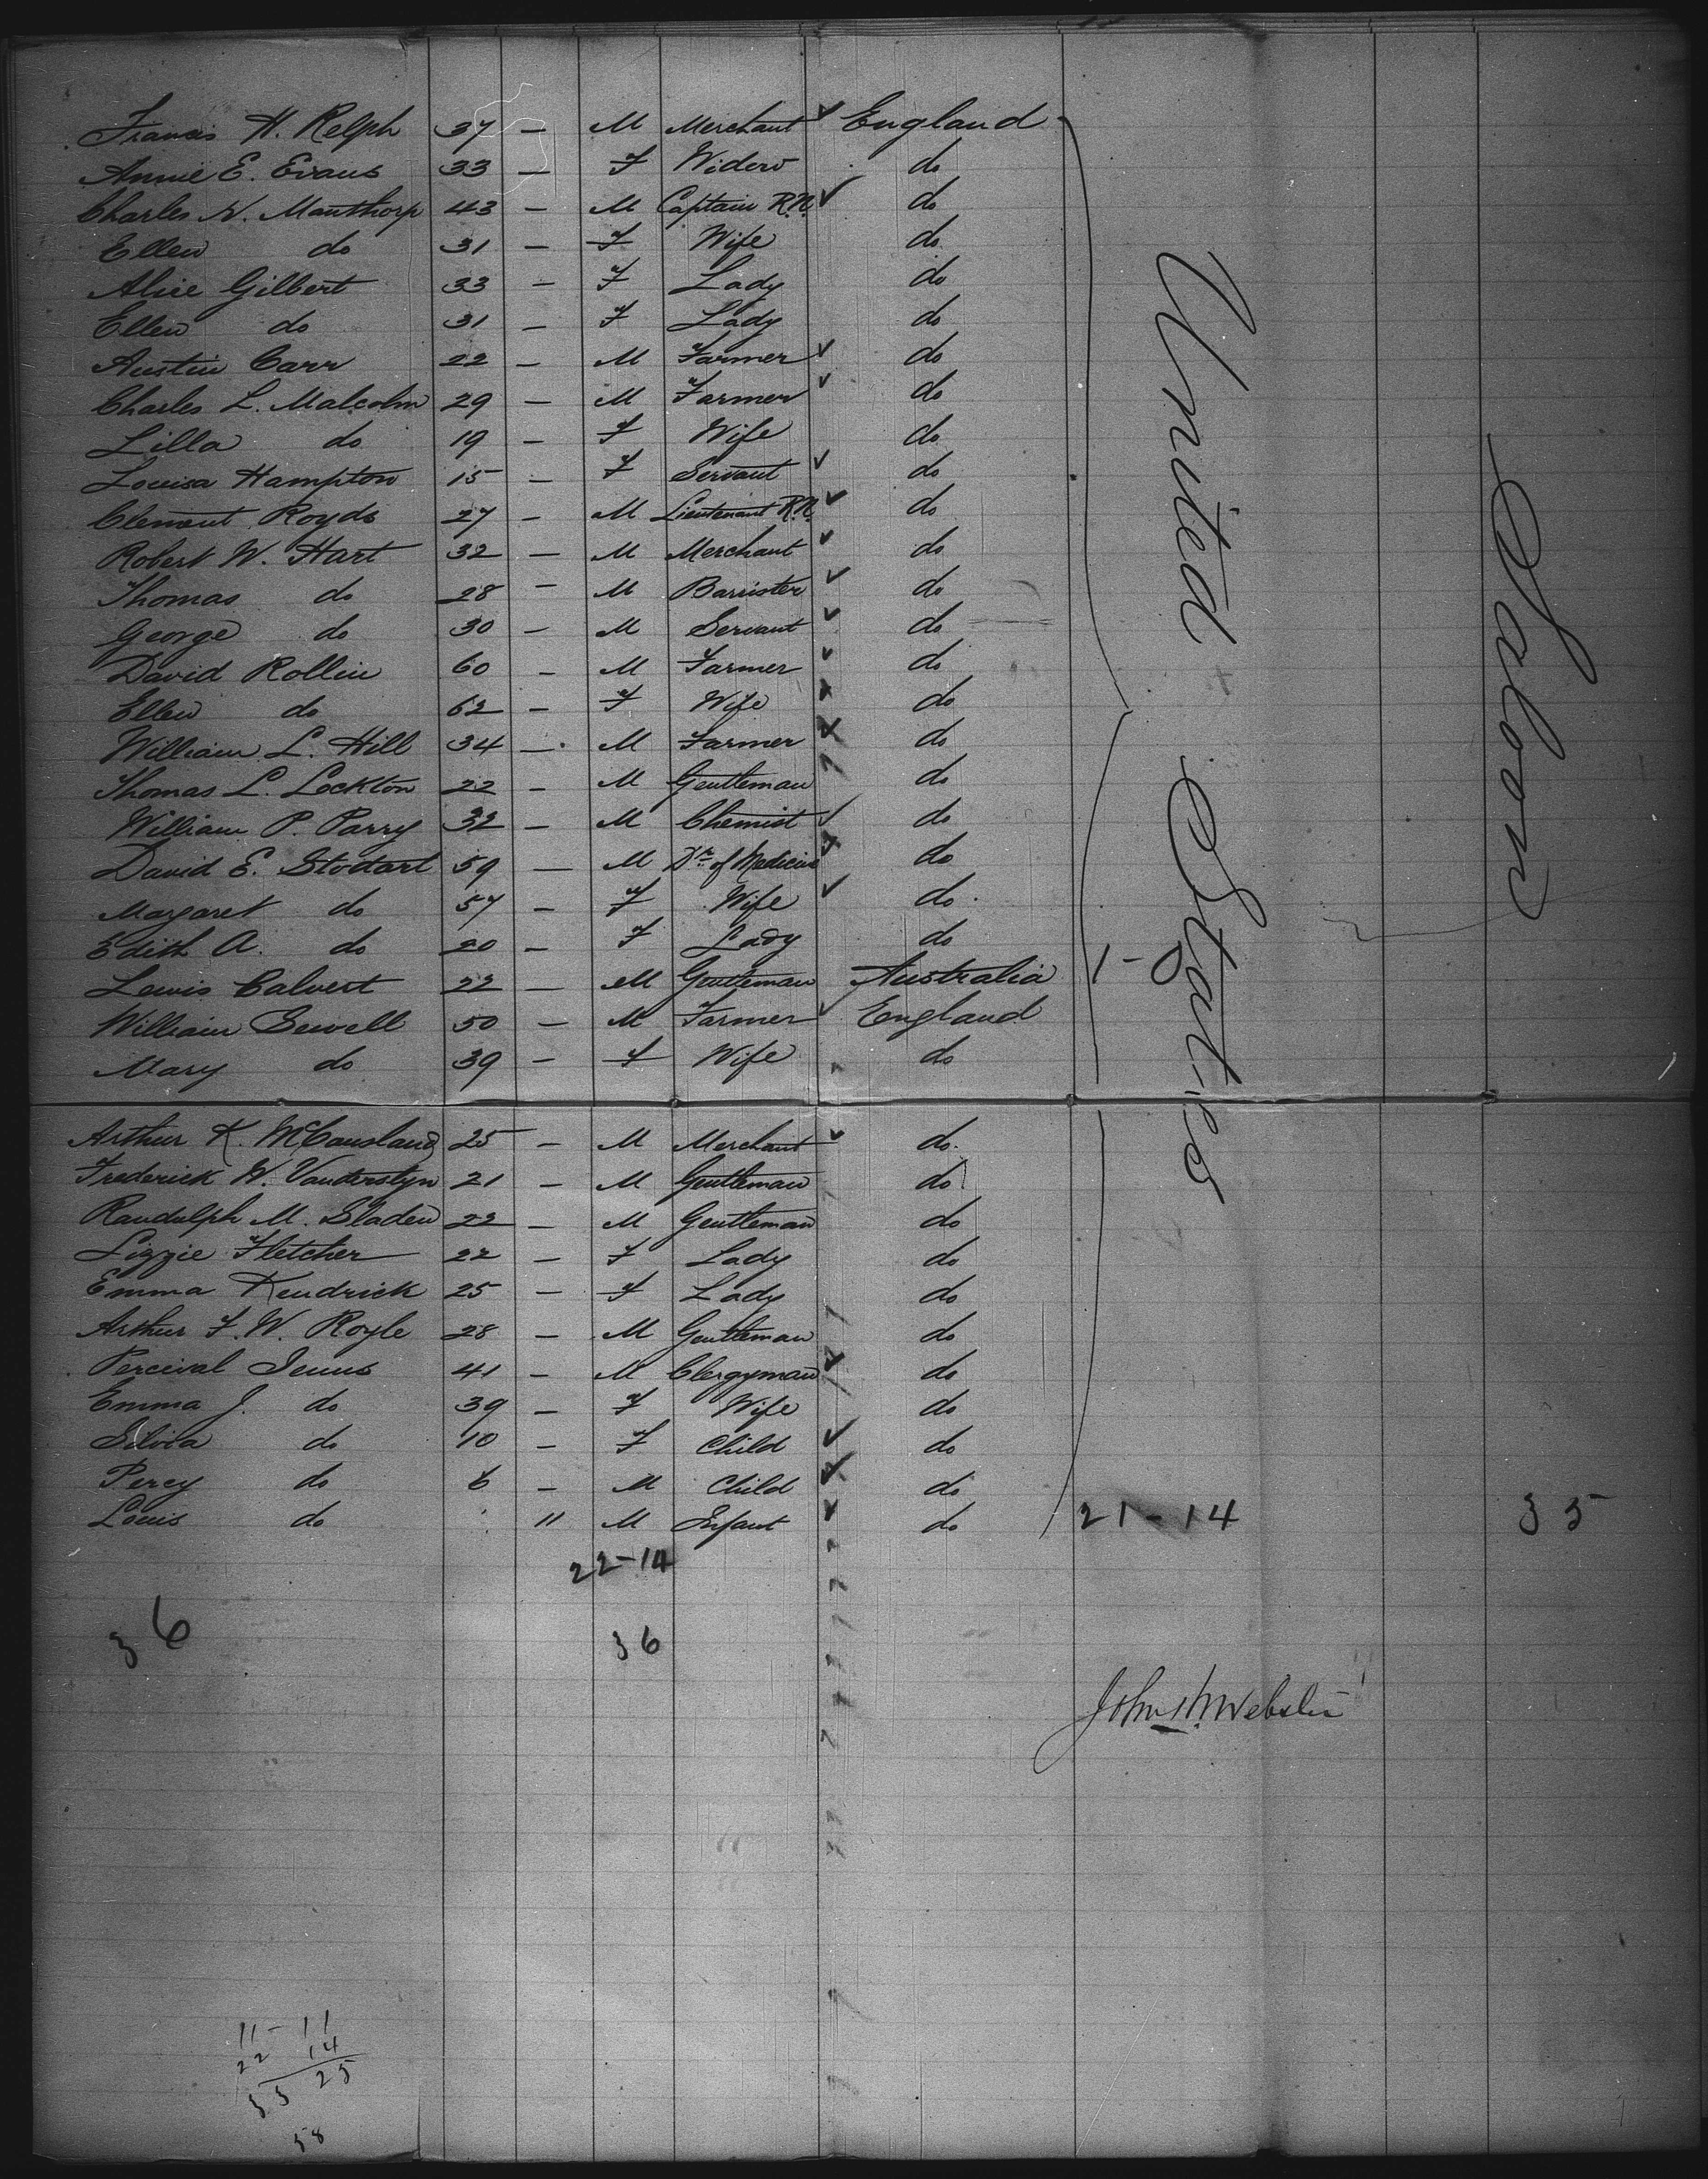 Francis H. Relph 37 — M Merchant England
Annie E. Evans 33 — F Widow do
Charles N. Manthorp 43 — M Captain R.N. do
Ellen do 31 — F Wife do
Alice Gilbert 33 — F Lady do
Ellen do 31 — F Lady do
Austin Carr 22 — M Farmer do
Charles L. Malcolm 29 — M Farmer do
Lilla do 19 — F Wife do
Louisa Hampton 15 — F Servant do
Clement Royds 27 — M Lieutenant R.N. do
Robert W. Hart 32 — M Merchant do
Thomas do 28 — M Barrister do
George do 30 — M Servant do
David Rollin 60 — M Farmer do
Ellen do 62 — F Wife do
William L. Hill 34 — M Farmer do
Thomas L. Lockton 22 — M Gentleman do
William P. Parry 32 — M Chemist do
David E. Stodart 59 — M Dr of Medicine do
Margaret do 57 — F Wife do
Edith A. do 20 — F Lady do
Lewis Calvert 22 — M Gentleman Australia 1-0
William Sewell 50 — M Farmer England
Mary do 39 — F Wife do
United States
Saloon
Arthur K. McCausland 25 — M Merchant do
Frederick W. Vanderslyn 21 — M Gentleman do
Randulph M. Sladen 22 — M Gentleman do
Lizzie Fletcher 22 — F Lady do
Emma Kendrick 25 — F Lady do
Arthur F. W. Royle 28 — M Gentleman do
Percival 41 — M Clergyman do
Emma J. do 39 — F Wife do
Silvia do 10 — F Child do
Percy do 6 — M Child do
Louis do 11 M Infant do 21-14 35
22-14
36 36
John W. Webster
11-11
22 14
33 25
58